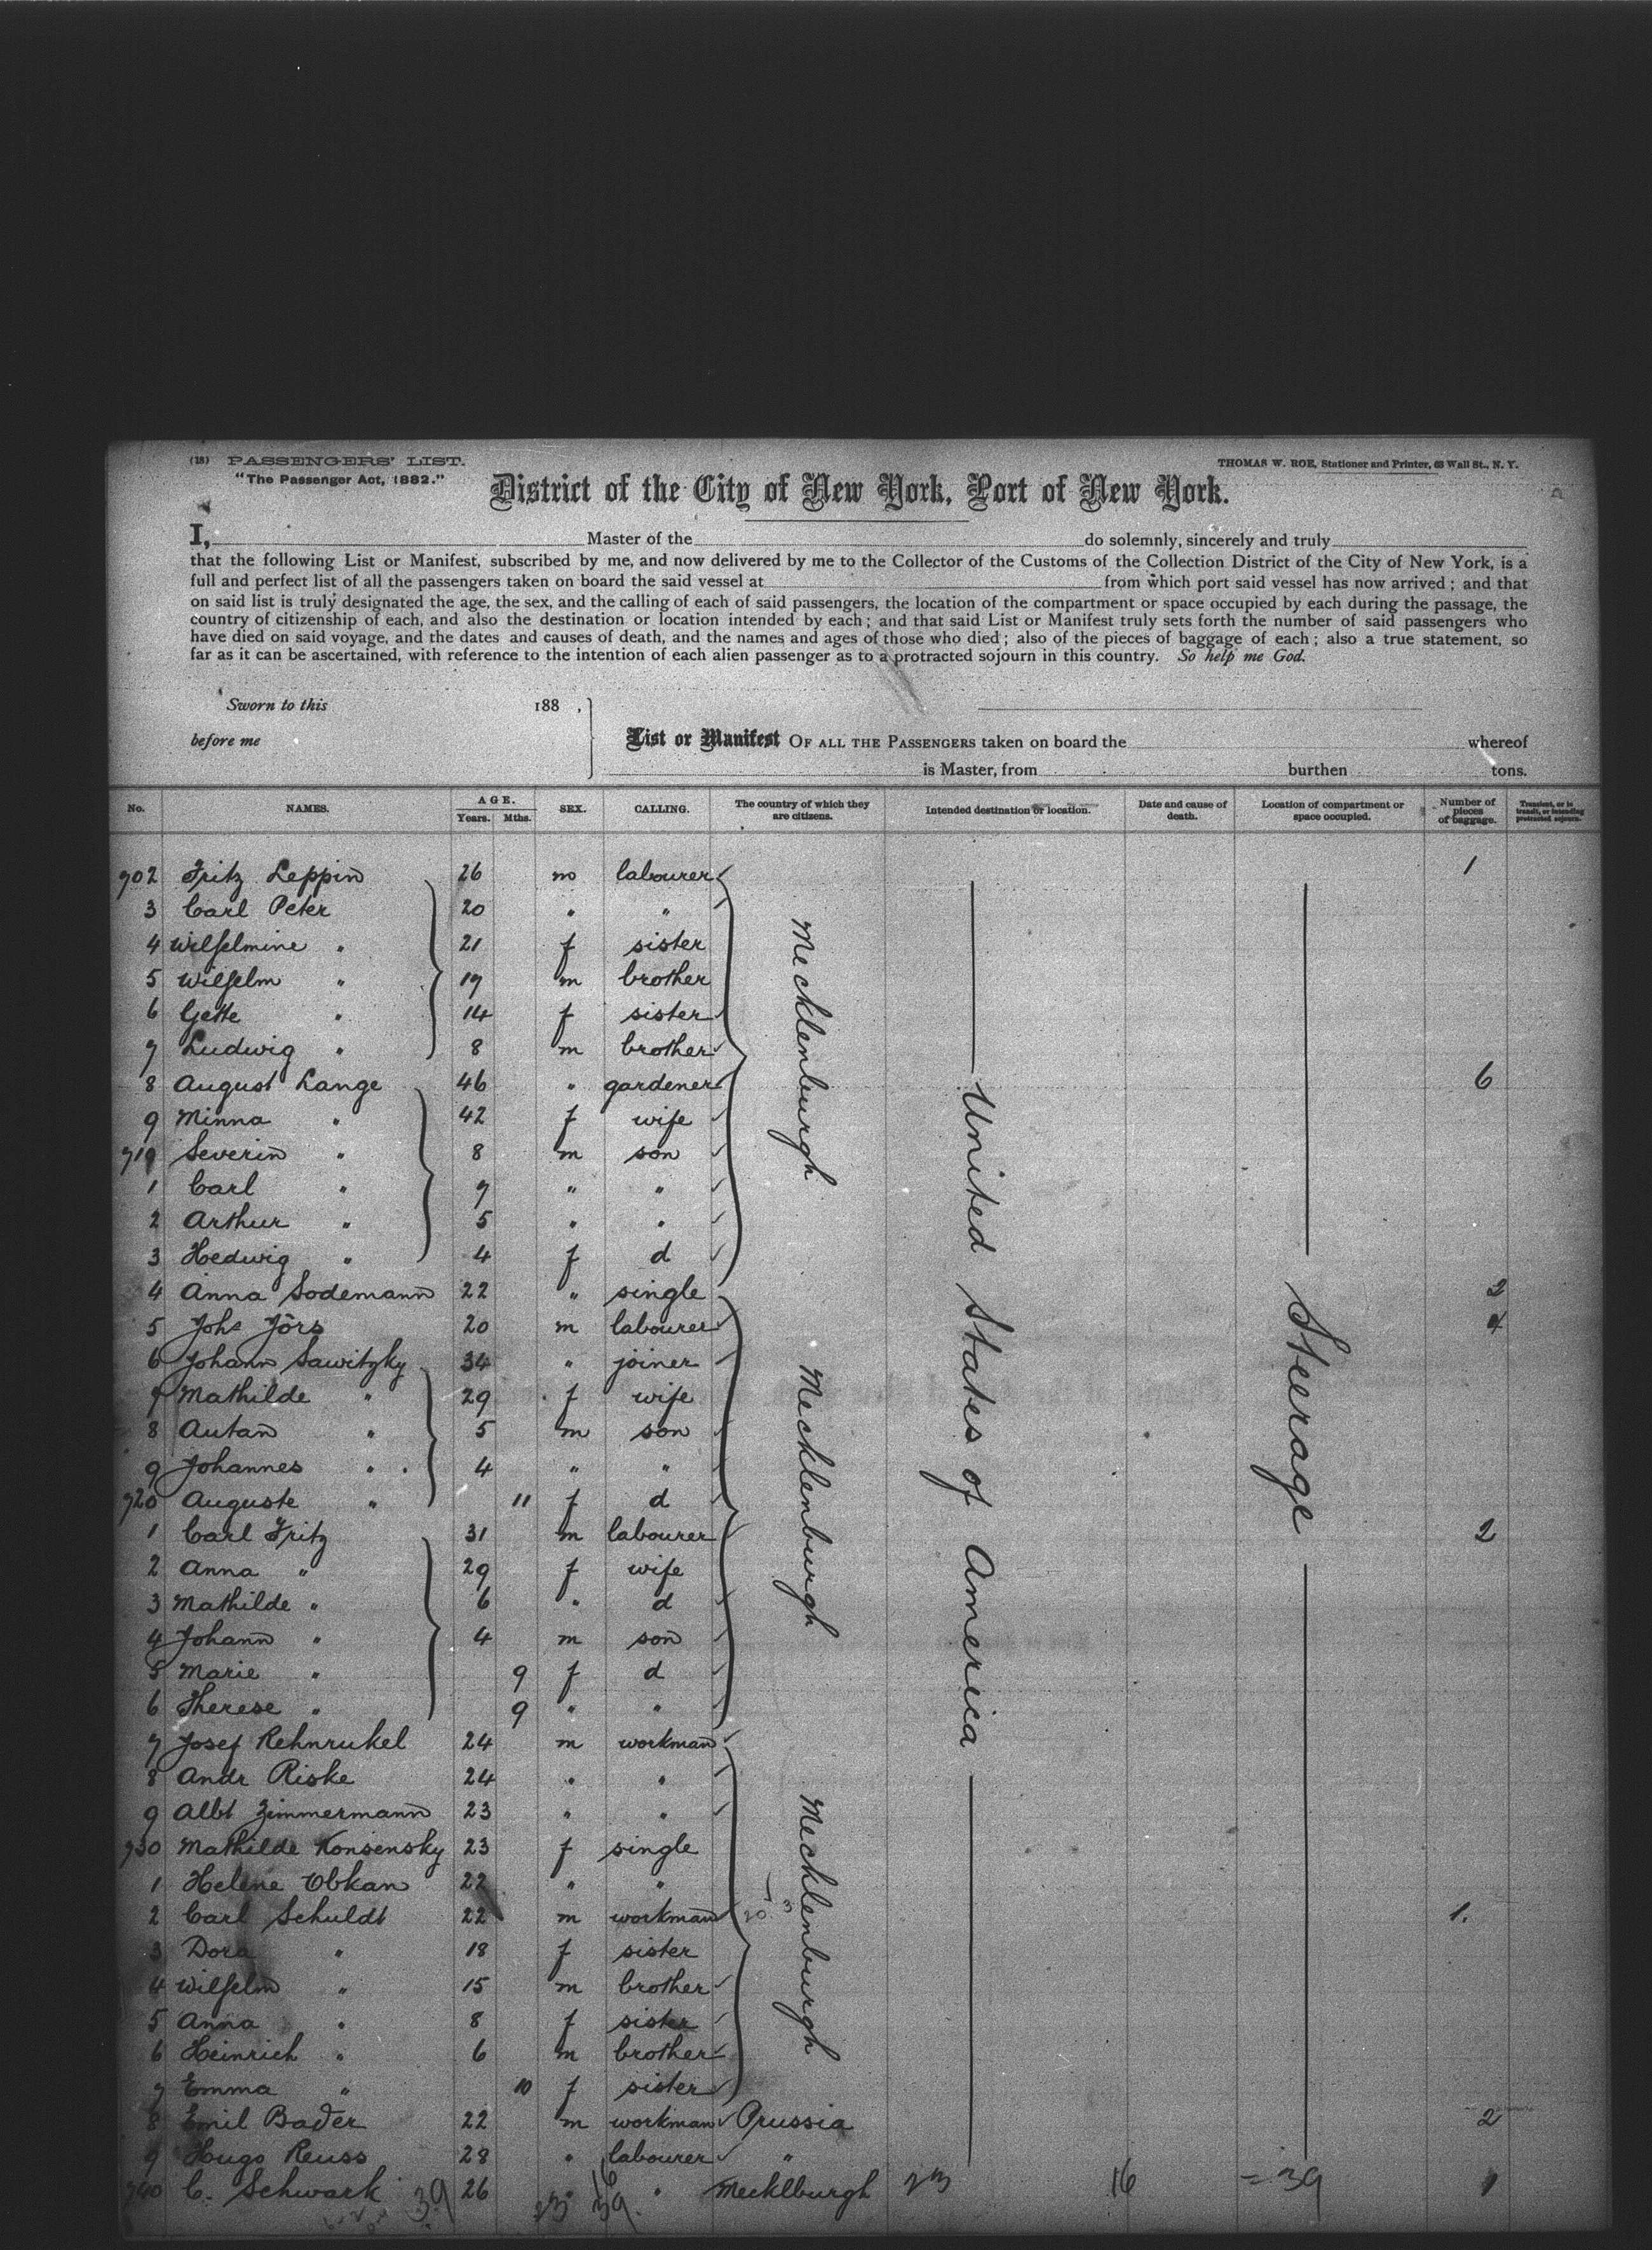 (18) PASSENGERS' LIST.
THOMAS W. ROE, Stationer and Printer, 63 Wall St., N. Y.
"The Passenger Act, 1882."
District of the City of New York, Port of New York.
I, Master of the do solemnly, sincerely and truly
that the following List or Manifest, subscribed by me, and now delivered by me to the Collector of the Customs of the Collection District of the City of New York, is a
full and perfect list of all the passengers taken on board the said vessel at from which port said vessel has now arrived; and that
on said list is truly designated the age, the sex, and the calling of each of said passengers, the location of the compartment or space occupied by each during the passage, the
country of citizenship of each, and also the destination or location intended by each; and that said List or Manifest truly sets forth the number of said passengers who
have died on said voyage, and the dates and causes of death, and the names and ages of those who died; also of the pieces of baggage of each; also a true statement, so
far as it can be ascertained, with reference to the intention of each alien passenger as to a protracted sojourn in this country. So help me God.
Sworn to this 188 ,
before me
List or Manifest OF ALL THE PASSENGERS taken on board the whereof
is Master, from burthen tons.
No. NAMES. AGE. Years. Mths. SEX. CALLING. The country of which they are citizens. Intended destination or location. Date and cause of death. Location of compartment or space occupied. Number of pieces of baggage. Transient, or in transit, or intending protracted sojourn.
702 Fritz Leppin 26 m labourer 1
3 Carl Peter 20 " "
4 Wilhelmine " 21 f sister
5 Wilhelm " 19 m brother
6 Gette " 14 f sister
7 Ludwig " 8 m brother
8 August Lange 46 " gardener 6
9 Minna " 42 f wife
710 Severin " 8 m son
1 Carl " 7 " "
2 Arthur " 5 " "
3 Hedwig " 4 f d
4 Anna Sodemann 22 " single 2
5 Johs Jörs 20 m labourer 4
6 Johann Sawitzky 34 " joiner
7 Mathilde " 29 f wife
8 Autan " 5 m son
9 Johannes " 4 " "
720 Auguste " 11 f d
1 Carl Fritz 31 m labourer 2
2 Anna " 29 f wife
3 Mathilde " 6 " d
4 Johann " 4 m son
5 Marie " 9 f d
6 Therese " 9 " "
7 Josef Rehnrukel 24 m workman
8 Andr Riske 24 " "
9 Albt Zimmermann 23 " "
730 Mathilde Konsensky 23 f single
1 Helene Obkan 22 " "
2 Carl Schuldt 22 m workman 20 3 1.
3 Dora " 18 f sister
4 Wilhelm " 15 m brother
5 Anna " 8 f sister
6 Heinrich " 6 m brother
7 Emma " 10 f sister
8 Emil Bader 22 m workman Prussia 2
9 Hugo Reuss 28 " labourer "
740 C. Schwark 39 26 " " Mecklburgh 23 16 = 39 1
23 16
39.
Mecklenburgh
Mecklenburgh
Mecklenburgh
United States of America
Steerage